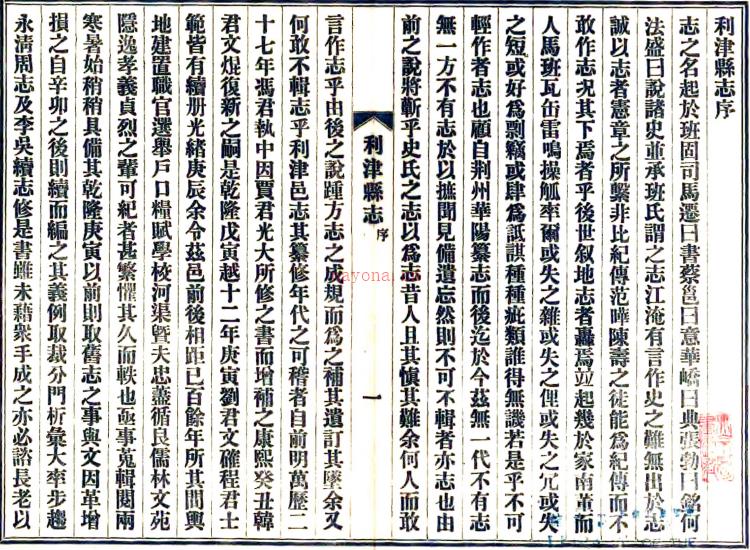 利津縣志序
志之名起於班固司馬遷曰書蔡邕曰意華嶠曰典張勃曰銘何
法盛曰說諸史並承班氏謂之志江淹有言作史之難無出於志
誠以志者憲章之所繫非比紀傳范曄陳壽之徒能為紀傳而不
敢作志況其下焉者乎後世叙地志者轟焉竝起幾於家南董而
人馬班瓦缶雷鳴操觚率爾或失之雜或失之俚或失之冗或失
之短或好為剽竊或肆為詆諆種種疵類誰得無譏若是乎不可
輕作者志也顧自荆州華陽纂志而後迄於今茲無一代不有志
無一方不有志於以摭聞見備遺忘然則不可不輯者亦志也由
前之說將蘄乎史氏之志以為志昔人且其愼其難余何人而敢
利津縣志
序
一
言作志乎由後之說踵方志之成規而為之補其遺訂其墜余又
何敢不輯志乎利津邑志其纂修年代之可稽者自前明萬歷二
十七年馮君執中因賈君光大所修之書而增補之康熙癸丑韓
君文焜復新之嗣是乾隆戊寅越十二年庚寅劉君文確程君士
範皆有續册光緒庚辰余令茲邑前後相距已百餘年所其間輿
地建置職官選舉戶口糧賦學校河渠曁夫忠藎循良儒林文苑
隱逸孝義貞烈之輩可紀者甚繁懼其久而軼也亟事蒐輯閱兩
寒暑始稍稍具備其乾隆庚寅以前則取舊志之事與文因革增
損之自辛卯之後則續而編之其義例取裁分門析彙大率步趨
永淸周志及李吳續志修是書雖未藉衆手成之亦必諮長老以